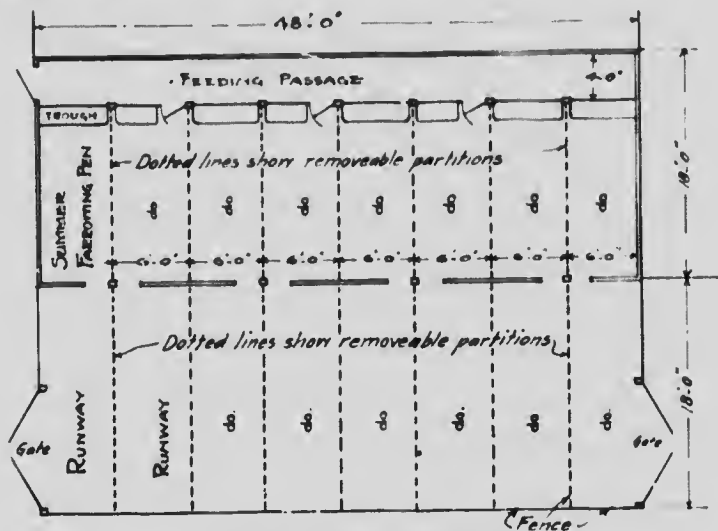 48'.0"
FEEDING PASSAGE
4-0"
TROUGH
Dotted lines show removeable partitions
SUMMER
FARROWING PEN
do do. do. do. do. do. do.
18'.0"
6'.0" 6'.0" 6'.0" 6'.0" 6'.0" 6'.0" 6'.0"
Dotted lines show removeable partitions
RUNWAY RUNWAY do. do. do. do. do. do.
18'.0"
Gate
Gate
Fence